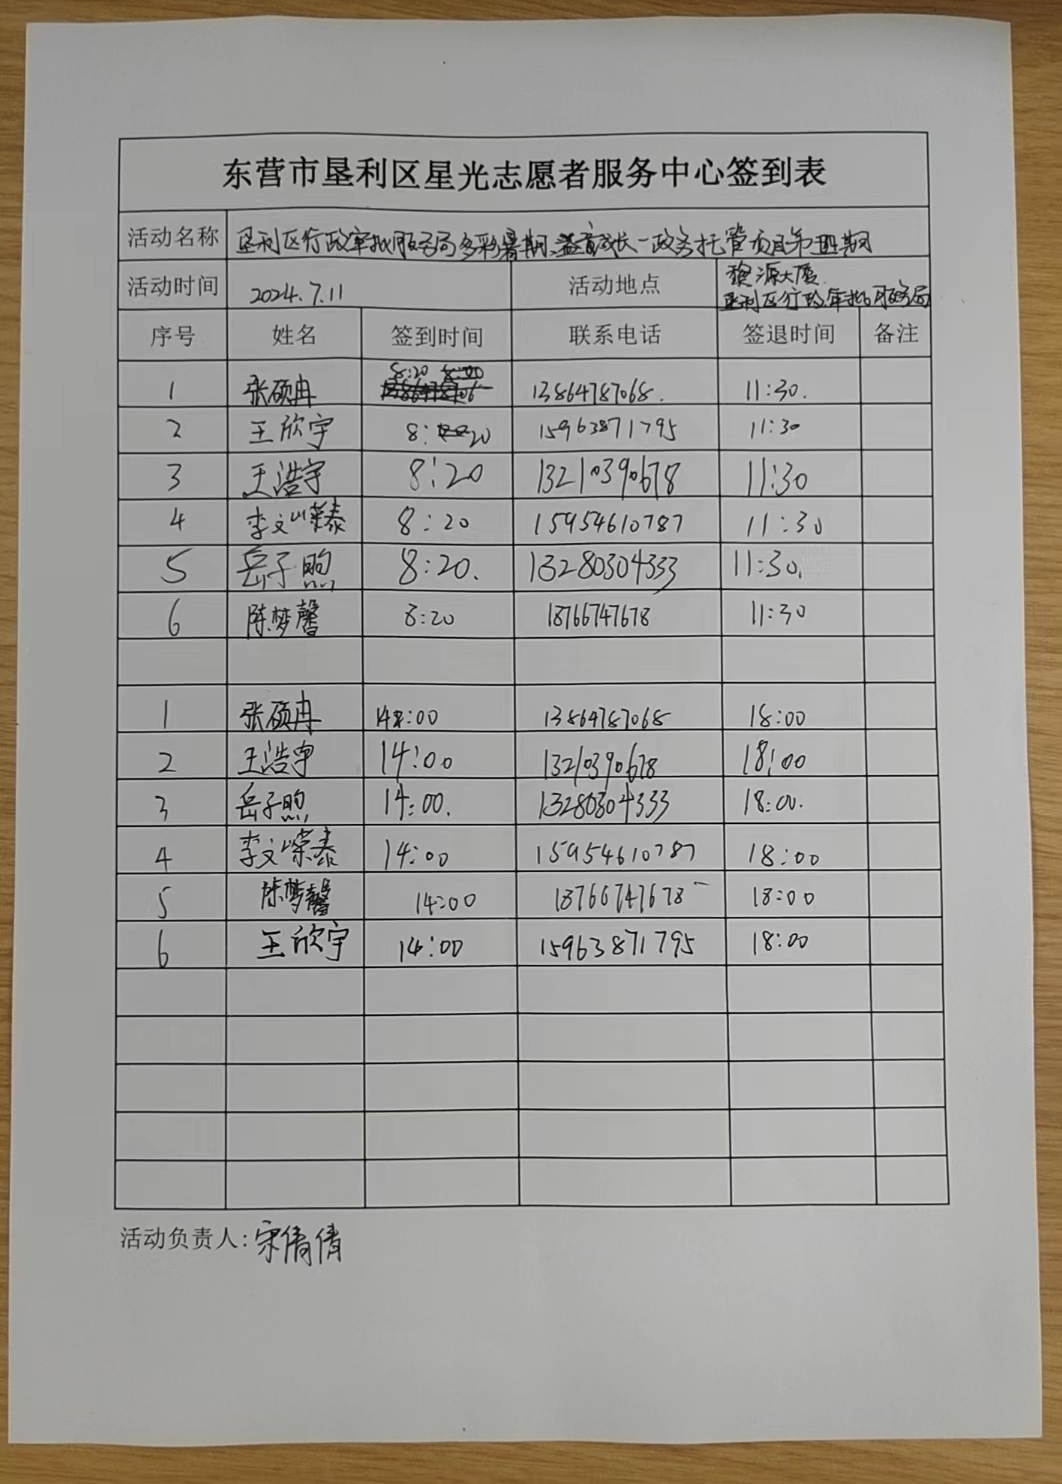 东营市垦利区星光志愿者服务中心签到表
活动名称 垦利区行政审批服务局多彩暑期、益童成长-政务托管项目第四期
活动时间 2024.7.11 活动地点 源大厦
垦利区行政审批服务局
序号 姓名 签到时间 联系电话 签退时间 备注
1 张硕冉 8:20 13864787068. 11:30.
2 王欣宇 8:20 15963871795 11:30
3 王浩宇 8:20 13210390678 11:30
4 李文嵘泰 8:20 15954610787 11:30
5 岳子煦 8:20. 13280304333 11:30.
6 陈梦馨 8:20 18766747678 11:30
1 张硕冉 14:00 13864787068 18:00
2 王浩宇 14:00 13210390678 18:00
3 岳子煦 14:00. 13280304333 18:00.
4 李文嵘泰 14:00 15954610787 18:00
5 陈梦馨 14:00 18766747678 18:00
6 王欣宇 14:00 15963871795 18:00
活动负责人:宋倩倩